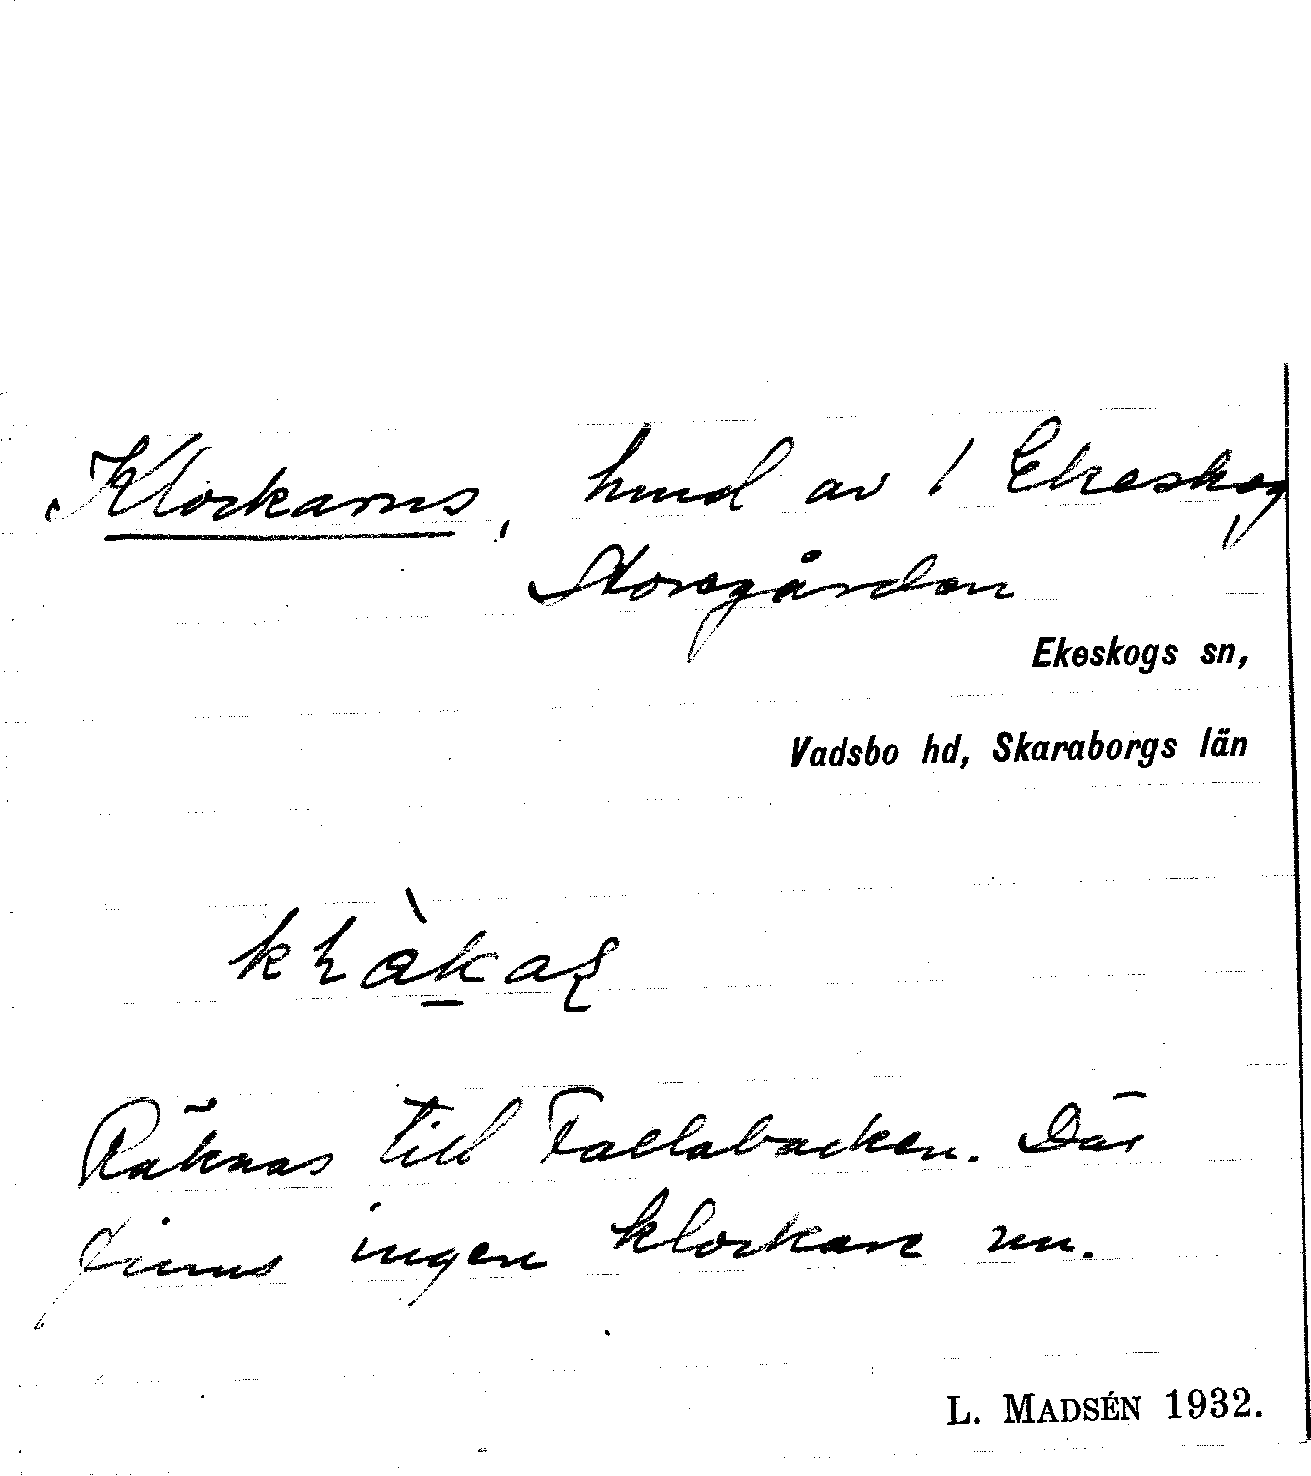 Klockarns, hmd av 1 Ekeskog,
Storegården
Ekeskogs sn,
Vadsbo hd, Skaraborgs län
Räknas till Fallabacken. Där
finns ingen klockare nu.
L. MADSÉN 1932.